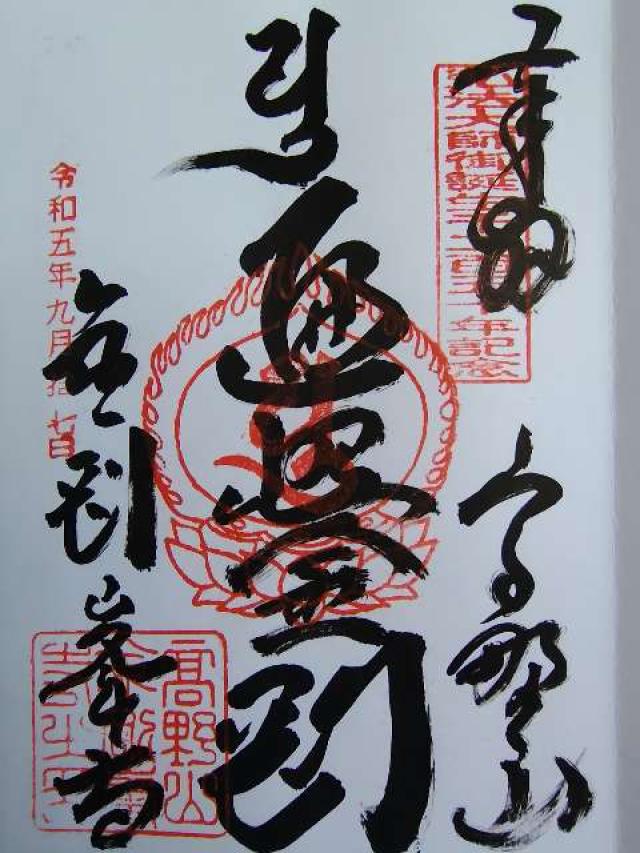 奉拝
高野山
弘法大師御誕生千二百五十年記念
遍照金剛
令和五年九月拾七日
金剛峯寺
高野山